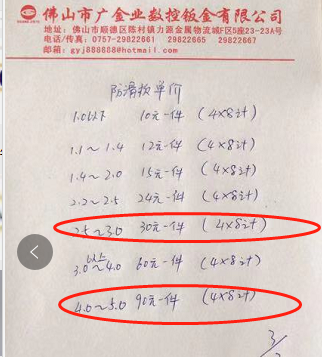 佛山市广金业数控钣金有限公司
地址：佛山市顺德区陈村镇力源金属物流城F区D座23-23A号
电话/传真：0757-29822661 29822665 29822667
邮箱：gyj888888@hotmail.com
防滑板单价
1.0以下 10元一件 (4×8计)
1.1~1.4 12元一件 (4×8计)
1.4~2.0 15元一件 (4×8计)
2.2~2.5 24元一件 (4×8计)
2.5~3.0 30元一件 (4×8计)
3.0以上~4.0 60元一件 (4×8计)
4.0~5.0 90元一件 (4×8计)